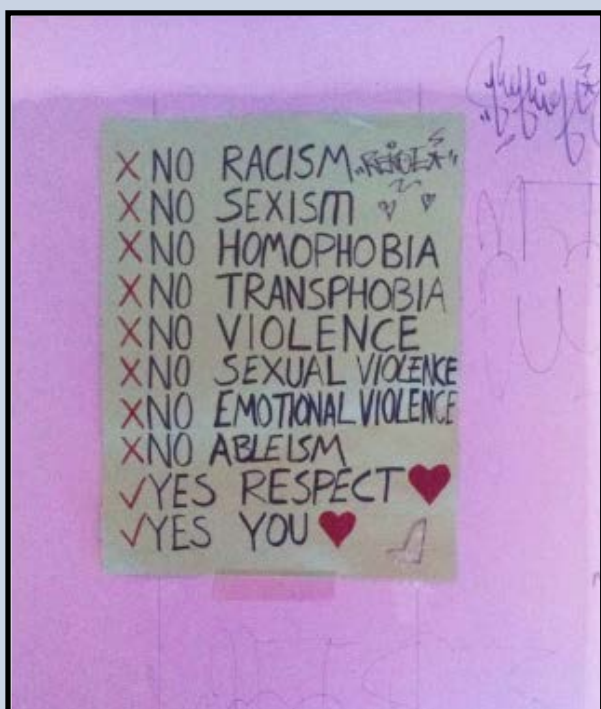 X NO RACISM
X NO SEXISM
X NO HOMOPHOBIA
X NO TRANSPHOBIA
X NO VIOLENCE
X NO SEXUAL VIOLENCE
X NO EMOTIONAL VIOLENCE
X NO ABLEISM
✓ YES RESPECT ♥
✓ YES YOU ♥